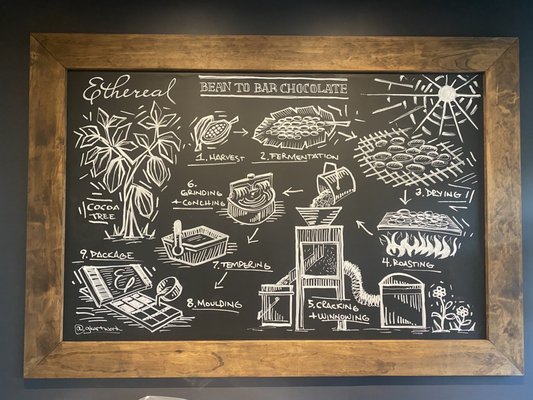 Ethereal
BEAN TO BAR CHOCOLATE
COCOA
TREE
1. HARVEST
2. FERMENTATION
3. DRYING
4. ROASTING
5. CRACKING
+ WINNOWING
6.
GRINDING
+ CONCHING
7. TEMPERING
8. MOULDING
9. PACKAGE
E